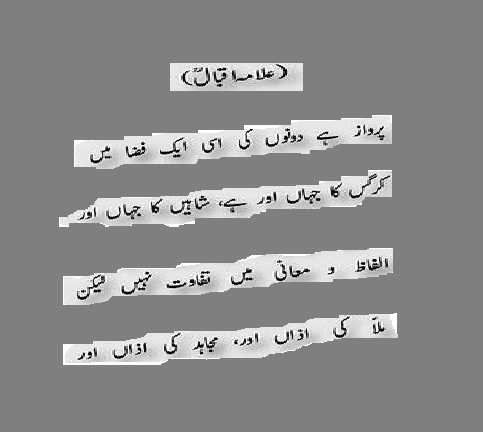 (علامہ اقبالؒ)
پرواز ہے دونوں کی اسی ایک فضا میں
کرگس کا جہاں اور ہے، شاہیں کا جہاں اور
الفاظ و معانی میں تفاوت نہیں لیکن
ملّا کی اذاں اور، مجاہد کی اذاں اور